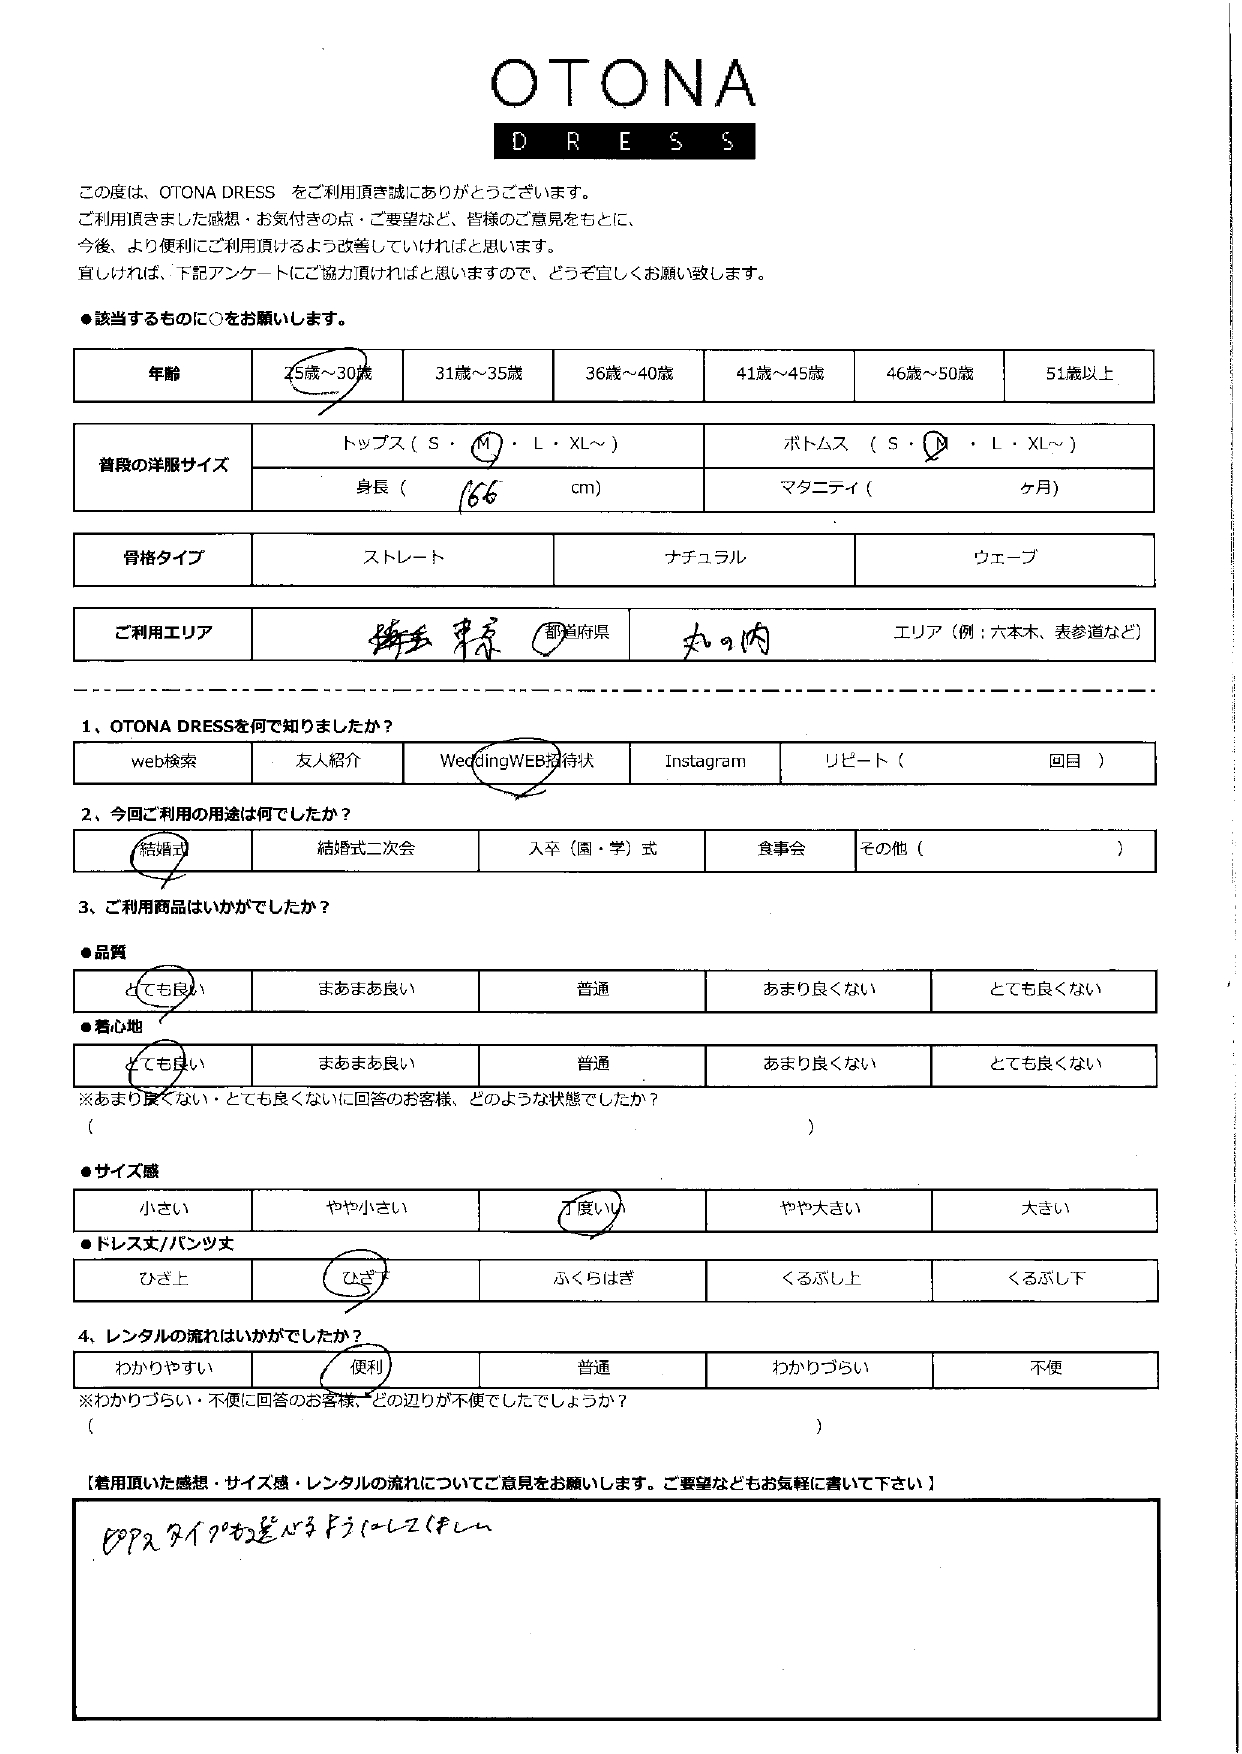 OTONA
DRESS
この度は、OTONA DRESS　をご利用頂き誠にありがとうございます。
ご利用頂きました感想・お気付きの点・ご要望など、皆様のご意見をもとに、
今後、より便利にご利用頂けるよう改善していければと思います。
宜しければ、下記アンケートにご協力頂ければと思いますので、どうぞ宜しくお願い致します。
●該当するものに○をお願いします。
年齢 25歳～30歳 31歳～35歳 36歳～40歳 41歳～45歳 46歳～50歳 51歳以上
普段の洋服サイズ トップス ( S ・ M ・ L ・ XL～ ) ボトムス ( S ・ M ・ L ・ XL～ )
身長 ( 166 cm) マタニティ ( ケ月)
骨格タイプ ストレート ナチュラル ウェーブ
ご利用エリア 東京 都道府県 丸の内 エリア（例；六本木、表参道など）
1、OTONA DRESSを何で知りましたか？
web検索 友人紹介 WeddingWEB招待状 Instagram リピート（ 回目 ）
2、今回ご利用の用途は何でしたか？
結婚式 結婚式二次会 入卒（園・学）式 食事会 その他（ ）
3、ご利用商品はいかがでしたか？
●品質
とても良い まあまあ良い 普通 あまり良くない とても良くない
●着心地
とても良い まあまあ良い 普通 あまり良くない とても良くない
※あまり良くない・とても良くないに回答のお客様、どのような状態でしたか？
（ ）
●サイズ感
小さい やや小さい 丁度いい やや大きい 大きい
●ドレス丈/パンツ丈
ひざ上 ひざ下 ふくらはぎ くるぶし上 くるぶし下
4、レンタルの流れはいかがでしたか？
わかりやすい 便利 普通 わかりづらい 不便
※わかりづらい・不便に回答のお客様、どの辺りが不便でしたでしょうか？
（ ）
【着用頂いた感想・サイズ感・レンタルの流れについてご意見をお願いします。ご要望などもお気軽に書いて下さい 】
ピアスタイプも選べるようにしてほしい